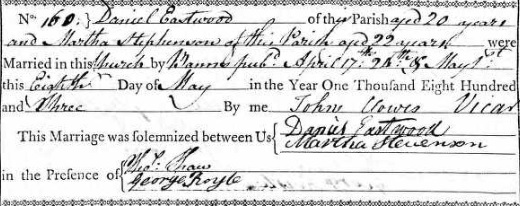 No. 160. } Daniel Eastwood of this Parish aged 20 years
and Martha Stephenson of this Parish aged 22 years were
Married in this Church by Banns pub.d April 17th. 24th. & May 1st
this Eighth Day of May in the Year One Thousand Eight Hundred
and Three By me John Clowes Vicar
This Marriage was solemnized between Us { Daniel Eastwood
Martha Stevenson
in the Presence of { Thos. Shaw
George Royle